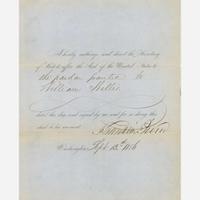 I hereby authorize and direct the Secretary
of State to affix the Seal of the United States to
the pardon granted to
William Willis
dated this day and signed by me and for so doing this
shall be his warrant.
Franklin Pierce
Washington Sept 13th 1856